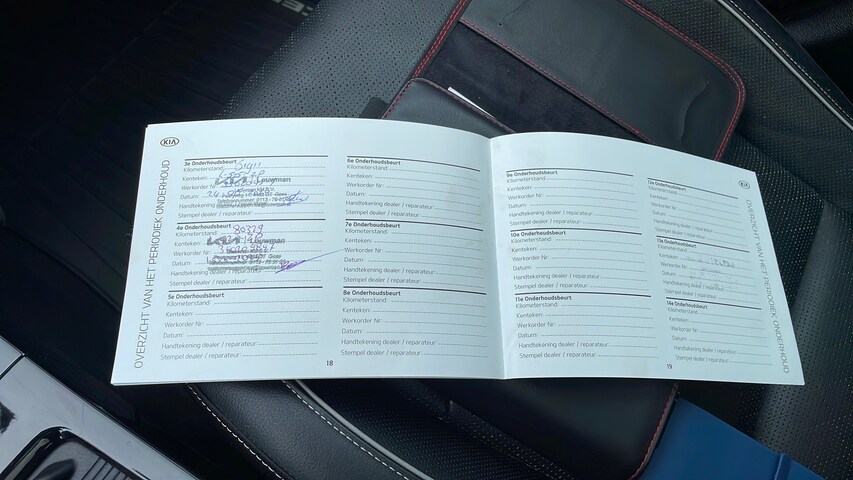 KIA
OVERZICHT VAN HET PERIODIEK ONDERHOUD
3e Onderhoudsbeurt
Kilometerstand:
Kenteken:
Werkorder Nr:
Datum:
Handtekening dealer / reparateur:
Stempel dealer / reparateur:
4e Onderhoudsbeurt
Kilometerstand: 80329
Kenteken:
Werkorder Nr:
Datum:
Handtekening dealer / reparateur:
Stempel dealer / reparateur:
5e Onderhoudsbeurt
Kilometerstand:
Kenteken:
Werkorder Nr:
Datum:
Handtekening dealer / reparateur:
Stempel dealer / reparateur:
6e Onderhoudsbeurt
Kilometerstand:
Kenteken:
Werkorder Nr:
Datum:
Handtekening dealer / reparateur:
Stempel dealer / reparateur:
7e Onderhoudsbeurt
Kilometerstand:
Kenteken:
Werkorder Nr:
Datum:
Handtekening dealer / reparateur:
Stempel dealer / reparateur:
8e Onderhoudsbeurt
Kilometerstand:
Kenteken:
Werkorder Nr:
Datum:
Handtekening dealer / reparateur:
Stempel dealer / reparateur:
18
9e Onderhoudsbeurt
Kilometerstand:
Kenteken:
Werkorder Nr:
Datum:
Handtekening dealer / reparateur:
Stempel dealer / reparateur:
10e Onderhoudsbeurt
Kilometerstand:
Kenteken:
Werkorder Nr:
Datum:
Handtekening dealer / reparateur:
Stempel dealer / reparateur:
11e Onderhoudsbeurt
Kilometerstand:
Kenteken:
Werkorder Nr:
Datum:
Handtekening dealer / reparateur:
Stempel dealer / reparateur:
12e Onderhoudsbeurt
Kilometerstand:
Kenteken:
Werkorder Nr:
Datum:
Handtekening dealer / reparateur:
Stempel dealer / reparateur:
13e Onderhoudsbeurt
Kilometerstand:
Kenteken:
Werkorder Nr:
Datum:
Handtekening dealer / reparateur:
Stempel dealer / reparateur:
14e Onderhoudsbeurt
Kilometerstand:
Kenteken:
Werkorder Nr:
Datum:
Handtekening dealer / reparateur:
Stempel dealer / reparateur:
19
KIA
OVERZICHT VAN HET PERIODIEK ONDERHOUD